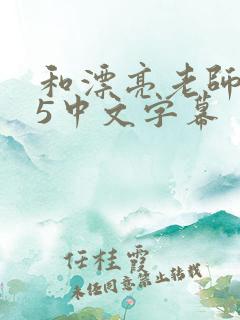 和漂亮老師
5中文字幕
任桂霞
未经同意禁止转载